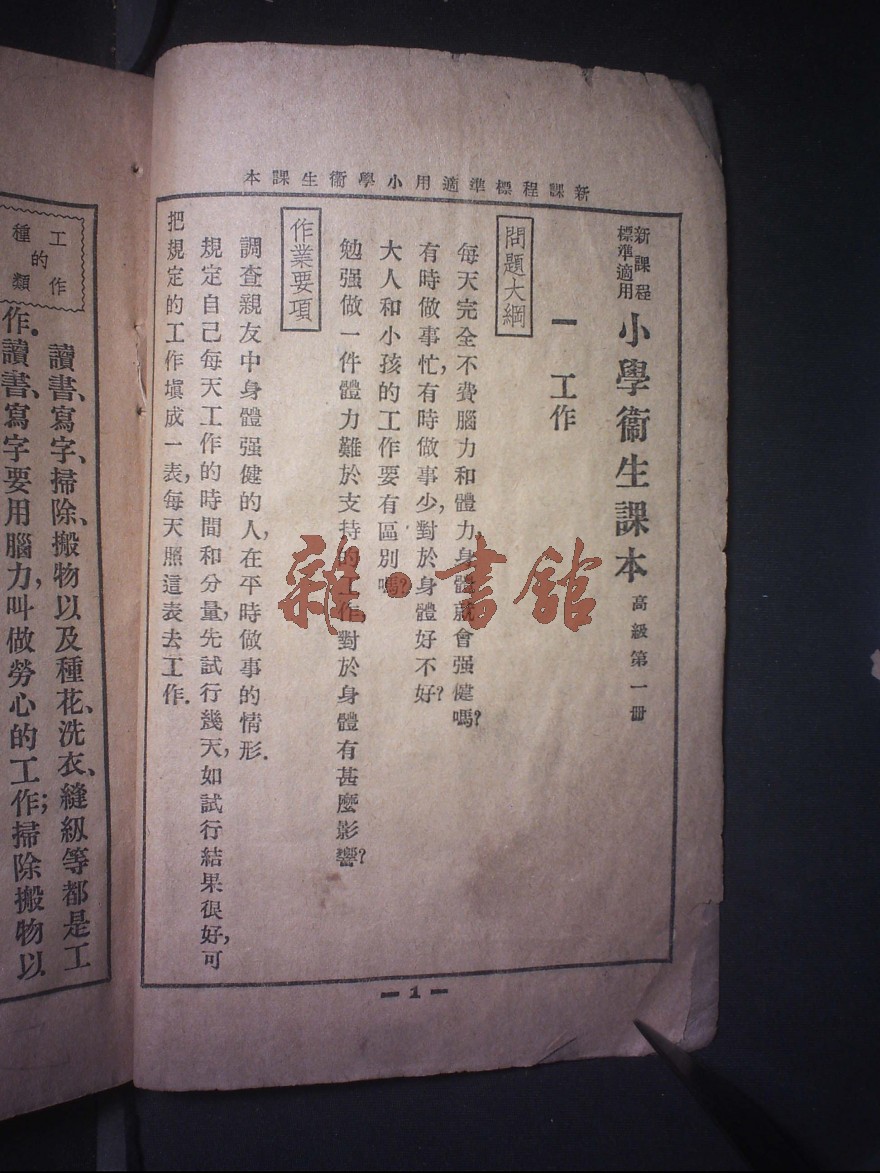 新課程標準適用小學衞生課本
新課程
標準適用
小學衞生課本 高級第一冊
一 工作
問題大綱
每天完全不費腦力和體力,身體就會强健嗎?
有時做事忙,有時做事少,對於身體好不好?
大人和小孩的工作要有區別嗎?
勉强做一件體力難於支持的工作,對於身體有甚麼影響?
作業要項
調查親友中身體强健的人,在平時做事的情形.
規定自己每天工作的時間和分量,先試行幾天,如試行結果很好,可
把規定的工作塡成一表,每天照這表去工作.
— 1 —
工作
的
種類
讀書、寫字、掃除、搬物以及種花、洗衣、縫級等都是工
作.讀書、寫字要用腦力,叫做勞心的工作;掃除搬物以
雜·書館